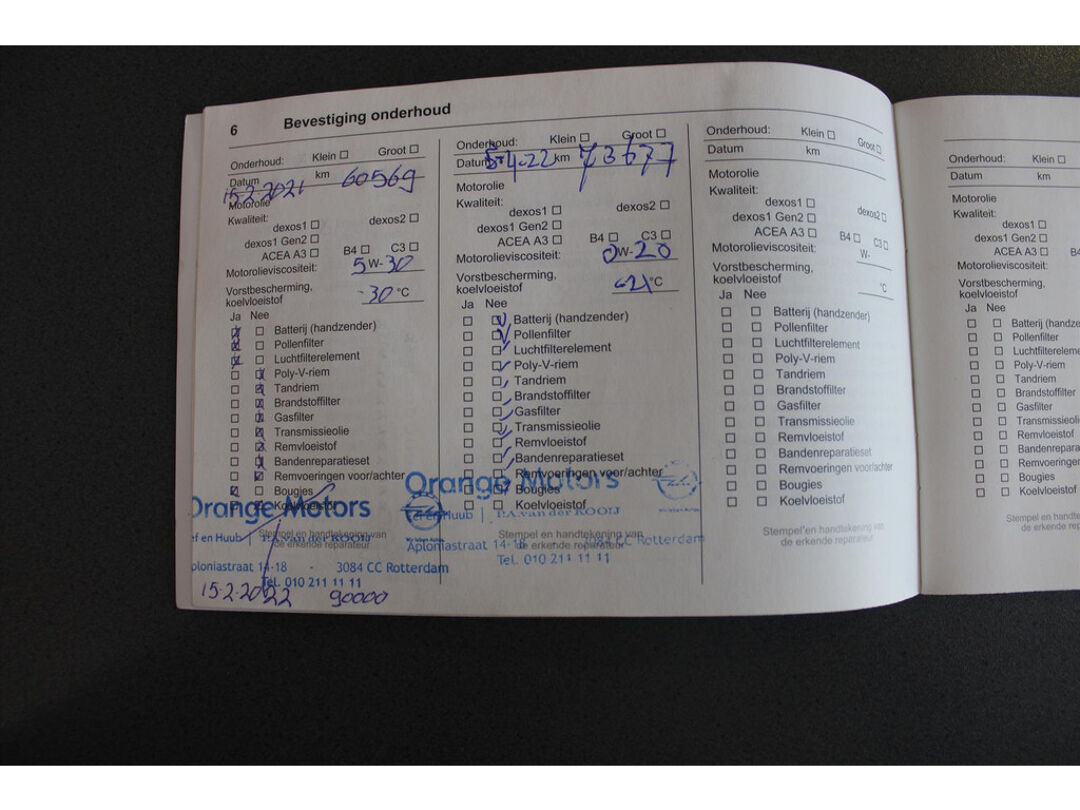 6 Bevestiging onderhoud
Onderhoud: Klein Groot
Datum km
15.2.2021 60569
Motorolie
Kwaliteit:
dexos1 dexos2
dexos1 Gen2
ACEA A3 B4 C3
Motorolieviscositeit: 5W-30
Vorstbescherming,
koelvloeistof -30 °C
Ja Nee
Batterij (handzender)
Pollenfilter
Luchtfilterelement
Poly-V-riem
Tandriem
Brandstoffilter
Gasfilter
Transmissieolie
Remvloeistof
Bandenreparatieset
Remvoeringen voor/achter
Bougies
Koelvloeistof
Orange Motors
ef en Huub P.A. van der KOOIJ
Stempel en handtekening van
de erkende reparateur
ploniastraat 14-18 - 3084 CC Rotterdam
Tel. 010 211 11 11
15.2.2022 90000
Onderhoud: Klein Groot
Datum 5-4-22 km 73677
Motorolie
Kwaliteit:
dexos1 dexos2
dexos1 Gen2
ACEA A3 B4 C3
Motorolieviscositeit: 0W-20
Vorstbescherming,
koelvloeistof -21 °C
Ja Nee
Batterij (handzender)
Pollenfilter
Luchtfilterelement
Poly-V-riem
Tandriem
Brandstoffilter
Gasfilter
Transmissieolie
Remvloeistof
Bandenreparatieset
Remvoeringen voor/achter
Bougies
Koelvloeistof
Orange Motors
ef en Huub P.A. van der KOOIJ
Stempel en handtekening van
de erkende reparateur
Aploniastraat 14-18 3084 CC Rotterdam
Tel. 010 211 11 11
Onderhoud: Klein Groot
Datum km
Motorolie
Kwaliteit:
dexos1 dexos2
dexos1 Gen2
ACEA A3 B4 C3
Motorolieviscositeit: W-
Vorstbescherming,
koelvloeistof °C
Ja Nee
Batterij (handzender)
Pollenfilter
Luchtfilterelement
Poly-V-riem
Tandriem
Brandstoffilter
Gasfilter
Transmissieolie
Remvloeistof
Bandenreparatieset
Remvoeringen voor/achter
Bougies
Koelvloeistof
Stempel en handtekening van
de erkende reparateur
Onderhoud: Klein
Datum km
Motorolie
Kwaliteit:
dexos1
dexos1 Gen2
ACEA A3 B4
Motorolieviscositeit:
Vorstbescherming,
koelvloeistof
Ja Nee
Batterij (handze
Pollenfilter
Luchtfiltereleme
Poly-V-riem
Tandriem
Brandstoffilter
Gasfilter
Transmissieoli
Remvloeistof
Bandenrepara
Remvoeringen
Bougies
Koelvloeistof
Stempel en handte
de erkende rep